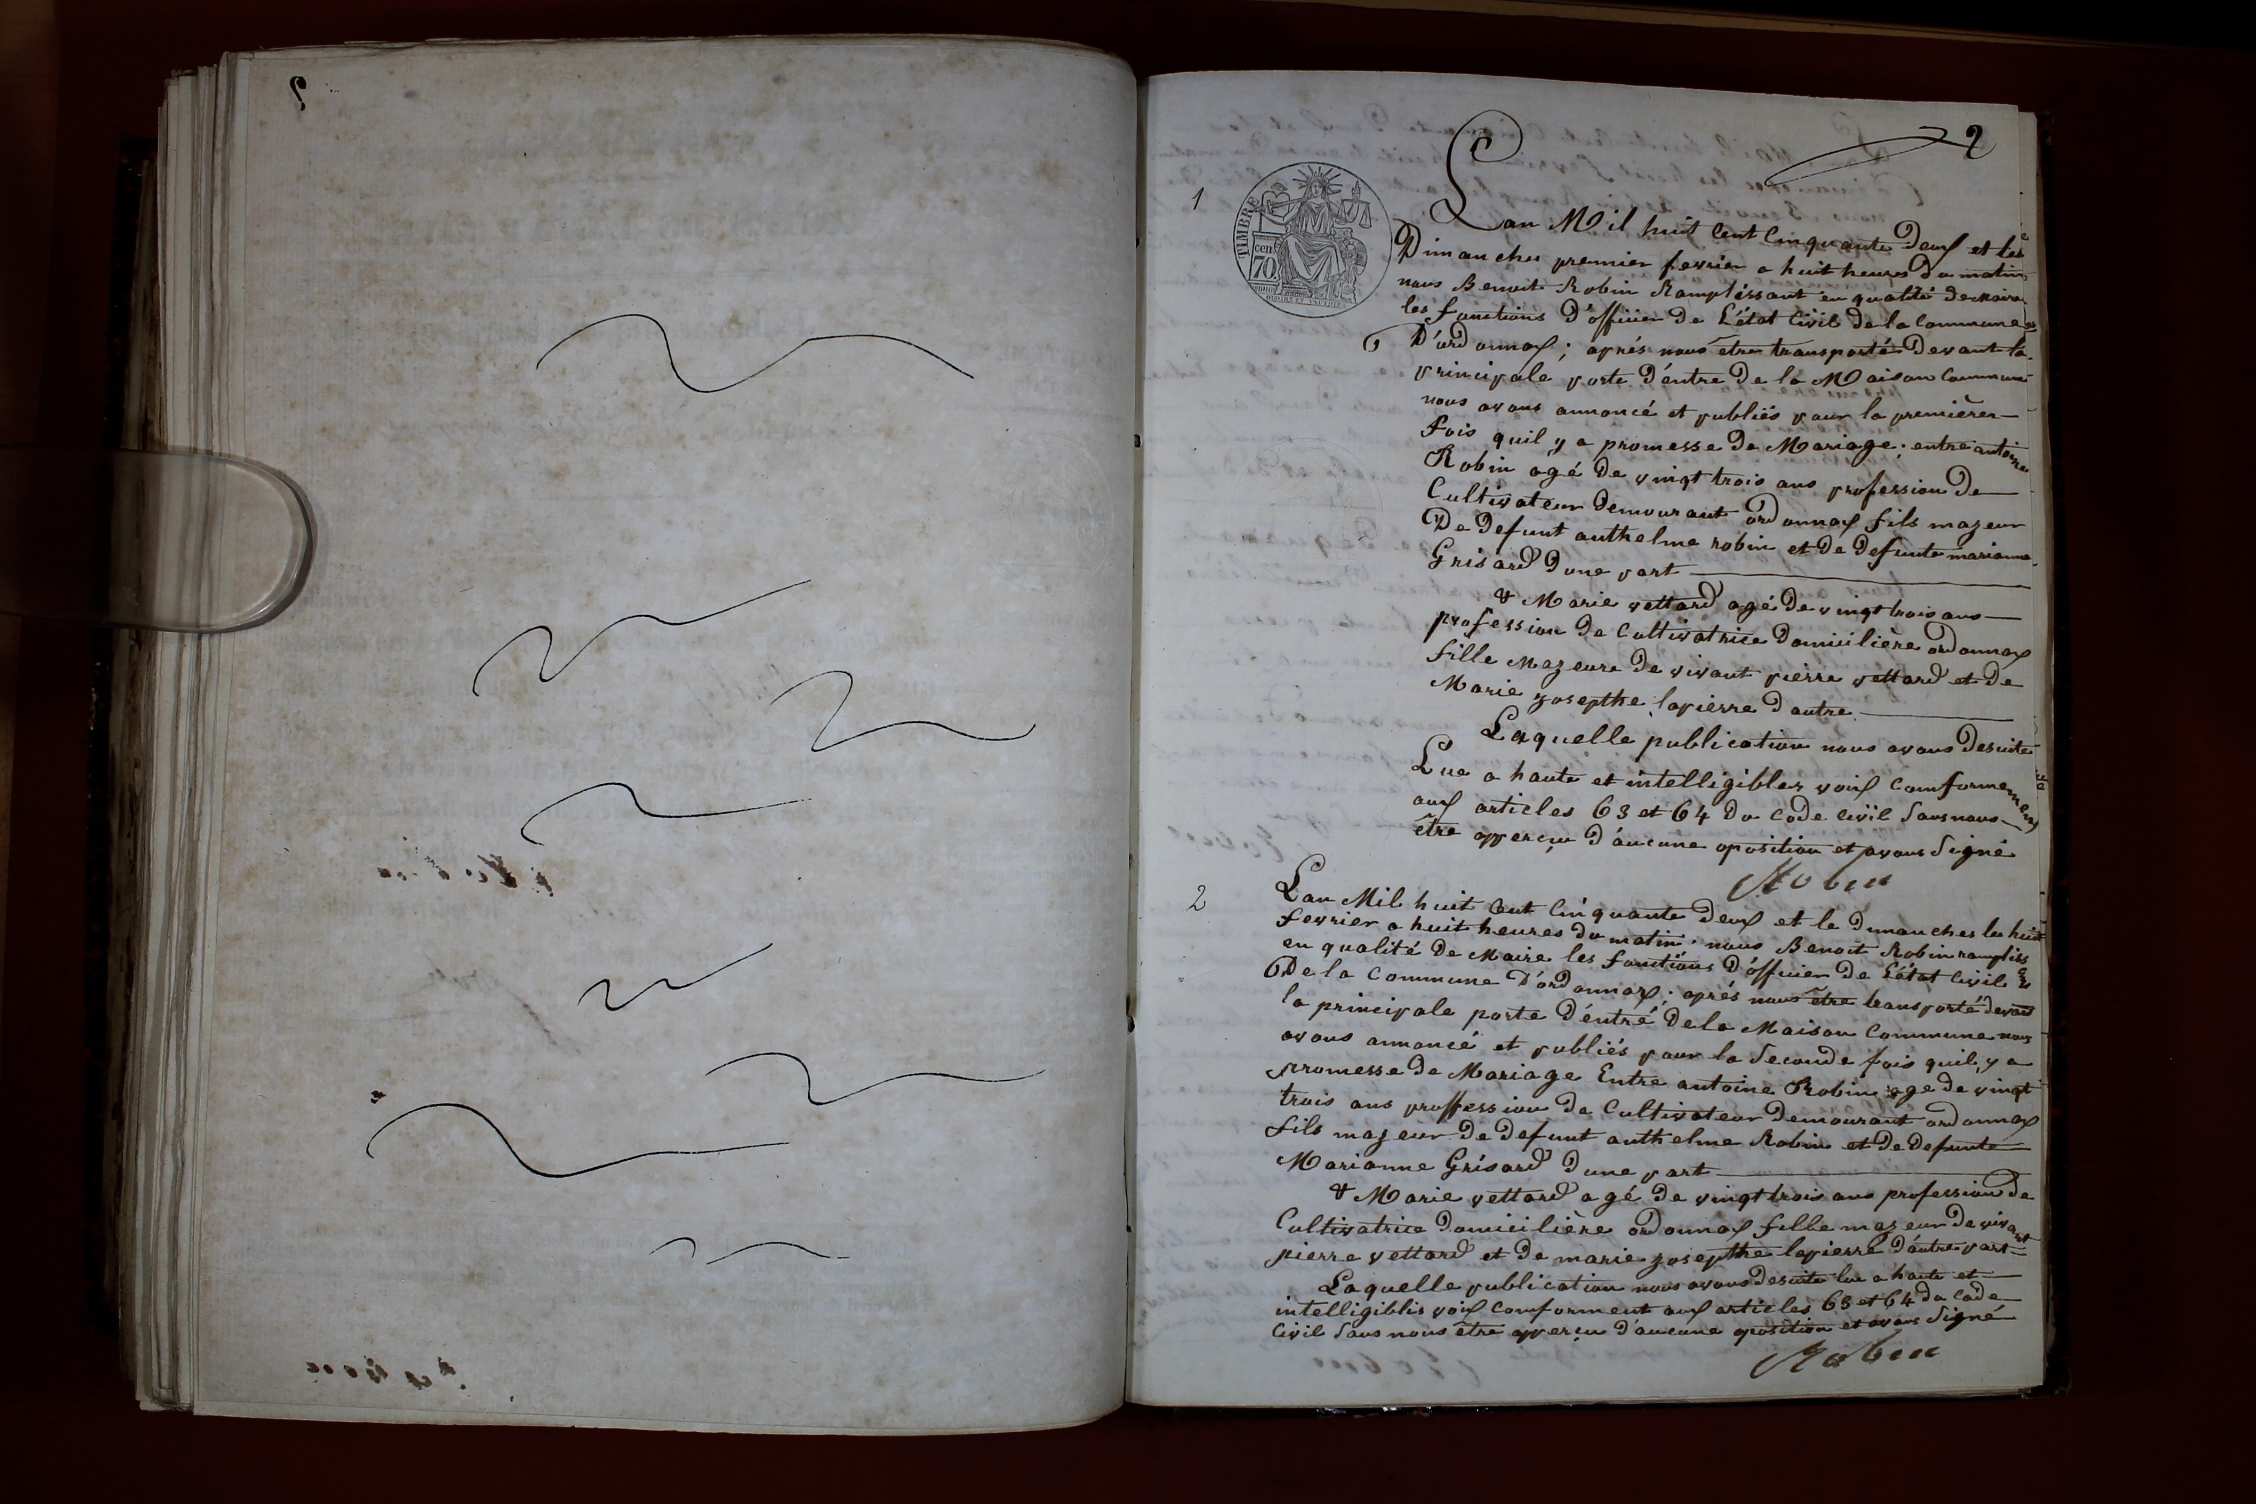 2
1
TIMBRE
cen
70
Lan Mil huit Cent Cinquante Deux et les
Dimanches premier fevrier a huit heures du matin
nous Benoit Robin Ramplissant en qualité de maire
les fonctions D'officier de L'état Civil de la Commune
D'ordonnax; aprés nous être transporté Devant la
principale porte D'entre De la Maison Commune
nous avons annoncé et publiés pour la premièrer
fois quil y a promesse de Mariage; entre antoine
Robin agé De vingt trois ans profession De
Cultivateur Demourant ordonnax fils mazeur
De Defunt anthelme robin et De Defunte marianne
Grisard Dune part
& Marie vettard agé De vingt trois ans
profession De Cultivatrice Domicilière ordonnax
fille Mazeure De vivant pierre vettard et De
Marie zosepthe lapierre D'autre
Laquelle publication nous avons Desuite
Lue a haute et intelligibles voix Comformement
aux articles 63 et 64 Du Code Civil Sans nous
être apperçu D'aucune oposition et avons Signé
Robin
2
Lan Mil huit Cent Cinquante Deux et le Dimanches les huit
fevrier a huit heures du matin; nous Benoit Robin rampliss
en qualité De Maire les fonctions D'officier De L'état Civil
De la Commune D'ordonnax; aprés nous être transporté devant
la principale porte D'éntré De la Maison Commune nous
avons annoncé et publiés pour la Seconde fois quil y a
promesse De Mariage Entre antoine Robin age De vingt
trois ans proffession De Cultivateur Demourant ordonnax
fils mazeur De Defunt anthelme Robin et De Defunte
Marianne Grisard Dune part
& Marie vettard agé De vingt trois ans profession De
Cultivatrice Domicilière ordonnax fille mazeur De vivant
pierre vettard et De marie zosepthe lapierre D'autre part
Laquelle publication nous avons Desuite lue a haute et
intelligiblis voix Comforment aux articles 63 et 64 Du Code
Civil Sans nous être apperçu D'aucune oposition et avons Signé
Robin